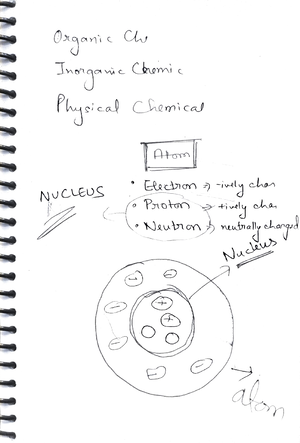 Organic Che
Inorganic Chemic
Physical Chemical
Atom
• Electron → -ively char
NUCLEUS
• Proton → +ively char
• Neutron → neutrally charged
Nucleus
atom